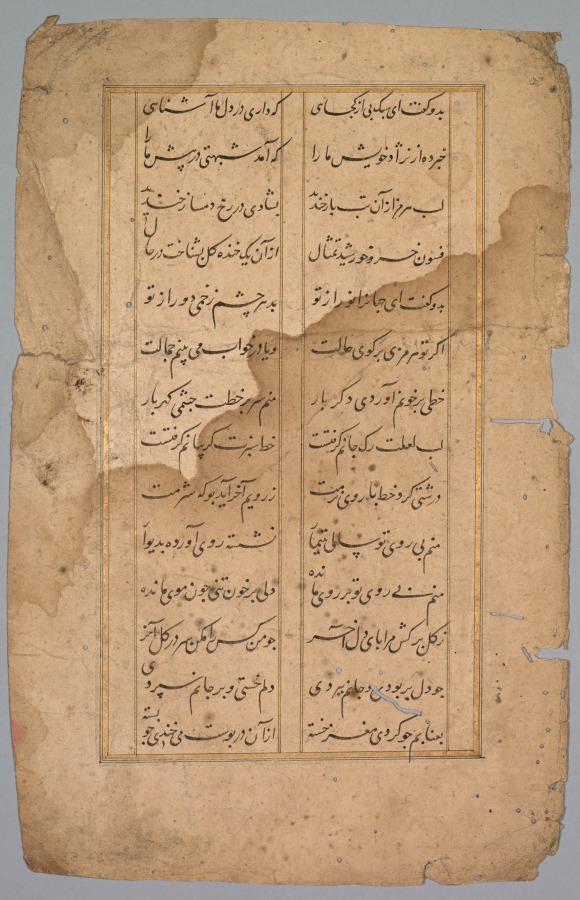 بدو گفت ای سبک پی از کجاسی که داری در دل ما آشناسی
خبر ده از نژاد خویش ما را که آمد شبهتی در پیش ما را
لب هرمز از آن بت باز خندید بشادی در رخ دمساز خندید
فسون خسرو خورشید تمثال از آن یک خنده کلن بشناخت در حال
بدو گفت ای جانرا نور از تو بدهر چشم زخمی دور از تو
اکر تو هرمزی برکوی حالت ویا در خواب می بینم جمالت
خطی بر خونم آوردی دکر بار منم سر بر خطت چشمی کهربار
لب لعلت رک جانم کرفتست خط سبزت کریبانم کرفتست
درشتی کرد خط با روی نرمت ز رویم آخر آید بو که شرمت
منم بی روی تو نشسته روی آورده بدیوار
منم بی روی تو بر روی مانده دلی پر خون تنی چون موی مانده
ز کل برکش مرا پای دل آخر چو من کس
چو دل بر بودی و جانم نبردی دلم خستی و بر جانم سپردی
چو کردی مغز خسته از آن در پوست می خندی چو بسته